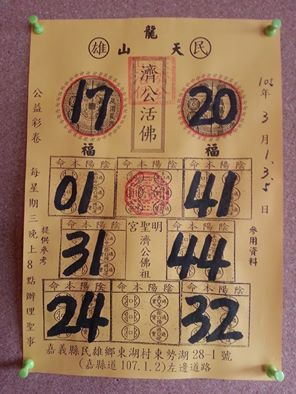 龍
雄 山 天 民
濟公活佛
17 20
福 福
公益彩卷
每星期三晚上8點辦理聖事
提供參考
年3月1.3.5日
命本陽陰 命本陽陰
01 41
聖明宮
濟公佛祖
參用資料
31 44
24 32
嘉義縣民雄鄉東湖村東勢湖28-1號
(嘉縣道107.1.2)左邊道路